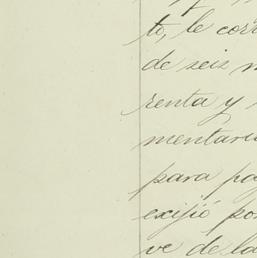 to, le corr
de seis m
renta y
mentari
para pa
exijió por
ve de la